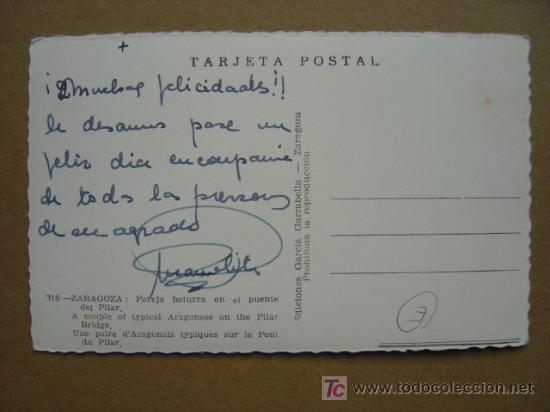 +
TARJETA POSTAL
¡¡Muchas felicidades!!
le desamos pase un
feliz dia en compania
de todas las personas
de su agrado
Manolita
Ediciones García Garrabella — Zaragoza
Prohibida la reproducción
316 —ZARAGOZA: Pareja baturra en el puente
del Pilar.
A couple of typical Aragonese on the Pilar
Bridge.
Une paire d'Aragonais typiques sur le Pont
du Pilar.
TC
todocoleccion
www.todocoleccion.net